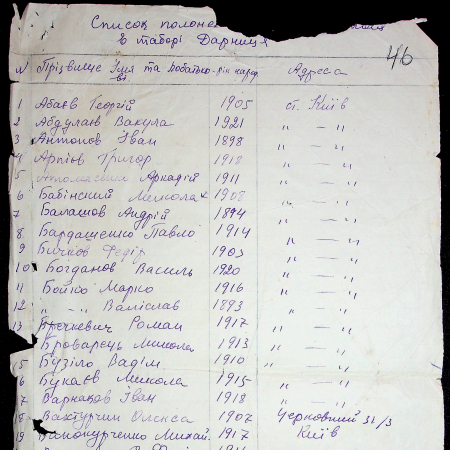 Список полоне
в таборі Дарниця
46
№ Прізвище Імя та Побатько- рік народ Адреса
ві
1 Абаєв Георгій 1905 ст. Київ
2 Абдулаєв Вакула 1921 " — "
3 Антонов Іван 1898 " — "
4 Арпієв Григор 1918 " — "
5 Аркадій 1911 " — "
6 Бабінский Микола 1908 " — "
7 Балашов Андрій 1894 " — "
8 Бардашенко Павло 1914 " — "
9 Бичков Федір 1903 " — "
10 Богданов Василь 1920 " — "
11 Бойко Марко 1916 " — "
12 " — " Валіслав 1893 " — "
13 Брочкевич Роман 1917 " — "
Броварець Микола 1913 " — "
15 Бузіло Вадім 1910 " — "
6 Букаєв Микола 1915 " — "
7 Варнаков Іван 1918 " — "
18 Вахтурчин Олекса 1907 31/3
19 Михай. 1917 Київ